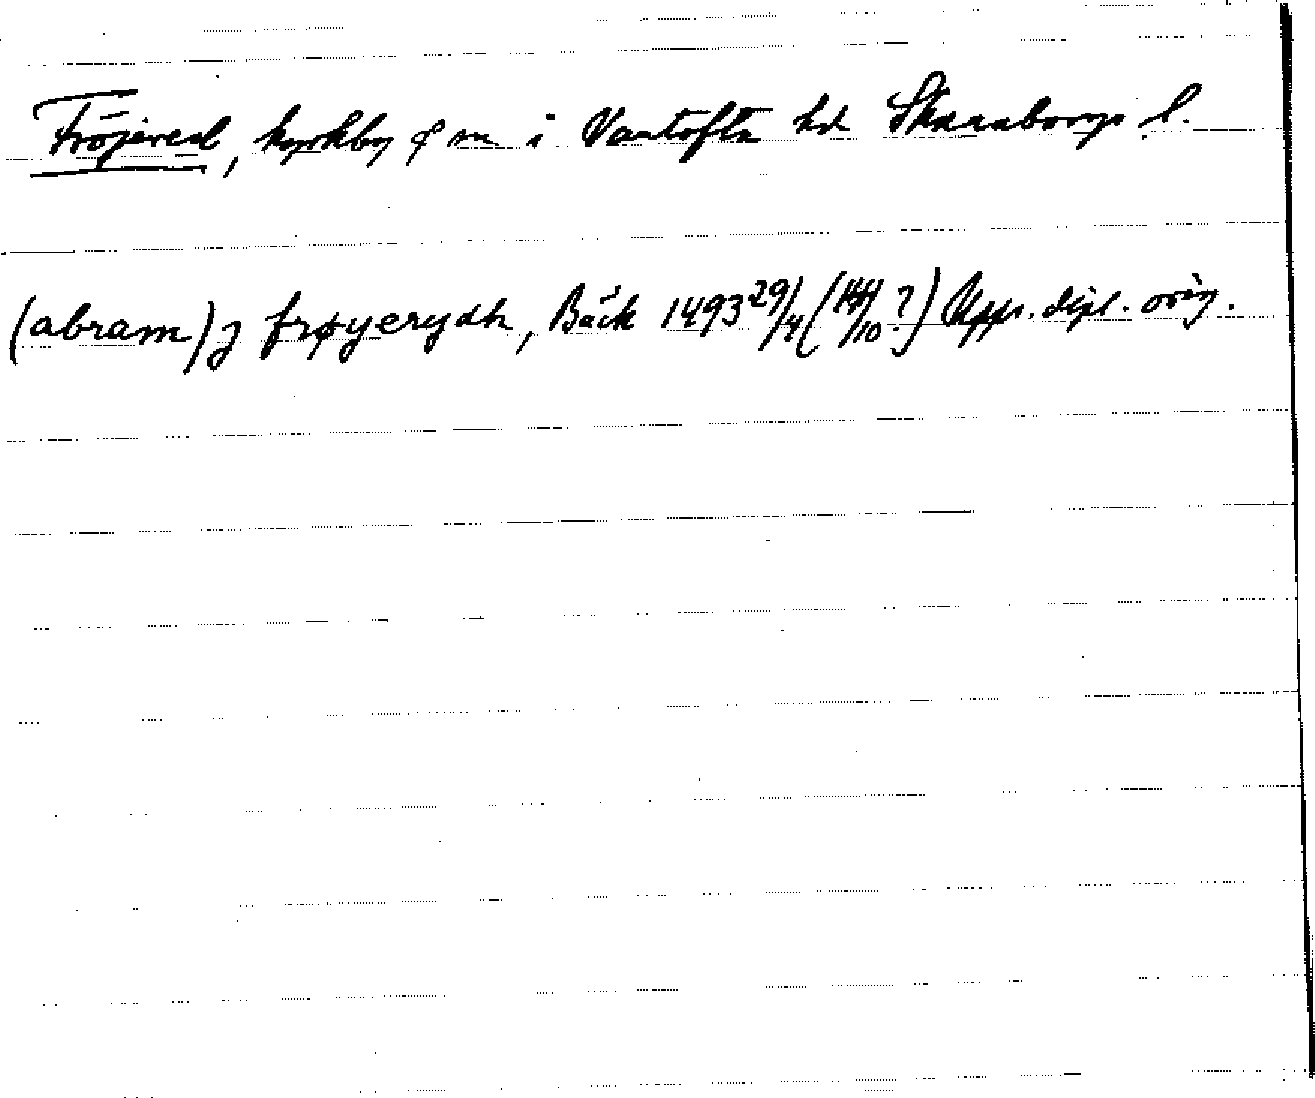 Fröjered, kyrkby o sn i Vartofta hd Skaraborgs l.
(abram) j frøyerydh, Bäck 1493 29/4 (14/10 ?) Upps. dipl. orig.